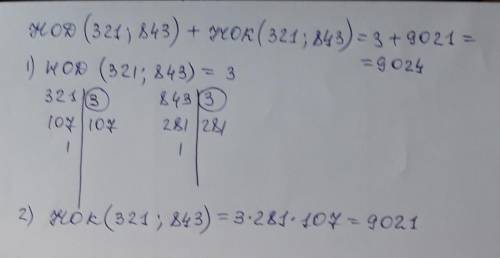 НОД (321; 843) + НОК (321; 843) = 3 + 9021 =
= 9024
1) НОД (321; 843) = 3
321 | 3 843 | 3
107 | 107 281 | 281
1 | 1 |
2) НОК (321; 843) = 3·281·107 = 9021